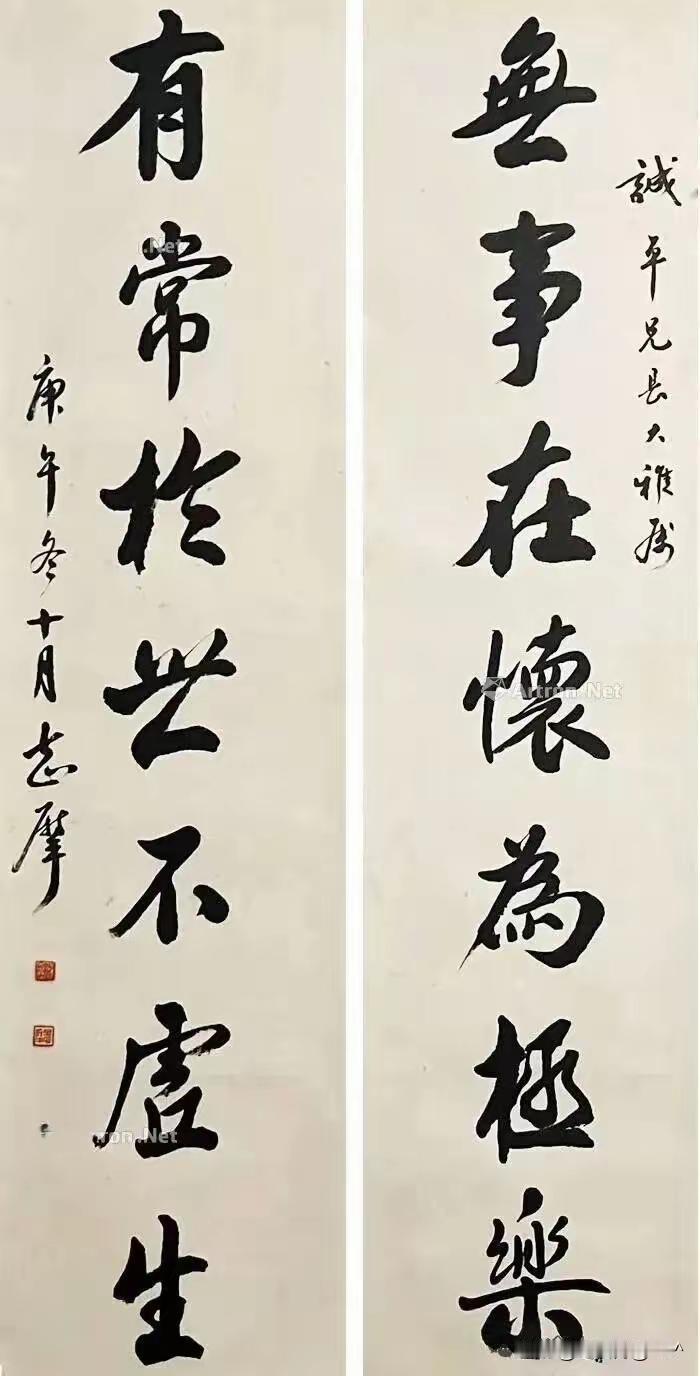 誠平兄長大雅屬
無事在懷為極樂
有常於世不虛生
庚午冬十月志摩
Artron.Net
.Net
tron.Net